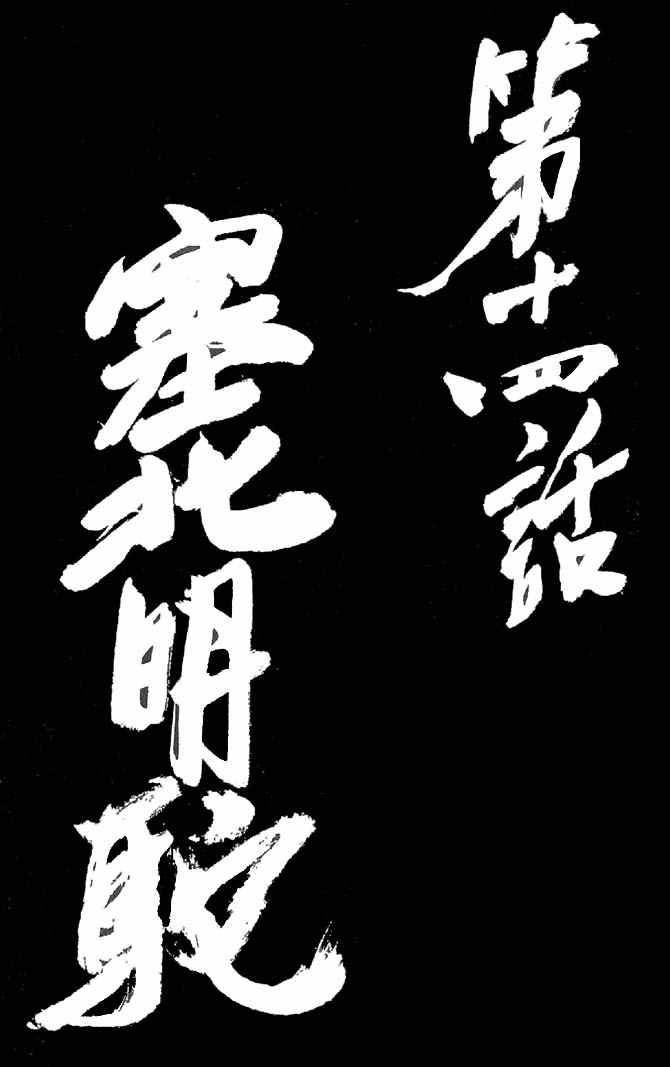 第十四話
塞北明駝